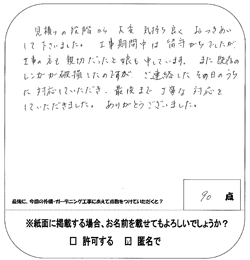 見積りの段階から大変気持ち良くおつきあい
して下さいました。工事期間中は留守がちでしたが
工事の方も親切だったと娘も申しています。また既存の
レンガが破損したのですが、ご連絡したその日のうち
に対応していただき、最後まで丁寧な対応を
していただきました。ありがとうございました。
最後に、今回の外構・ガーデニング工事にあえて点数をつけていただくと?
90 点
※紙面に掲載する場合、お名前を載せてもよろしいでしょうか?
□ 許可する ☑ 匿名で